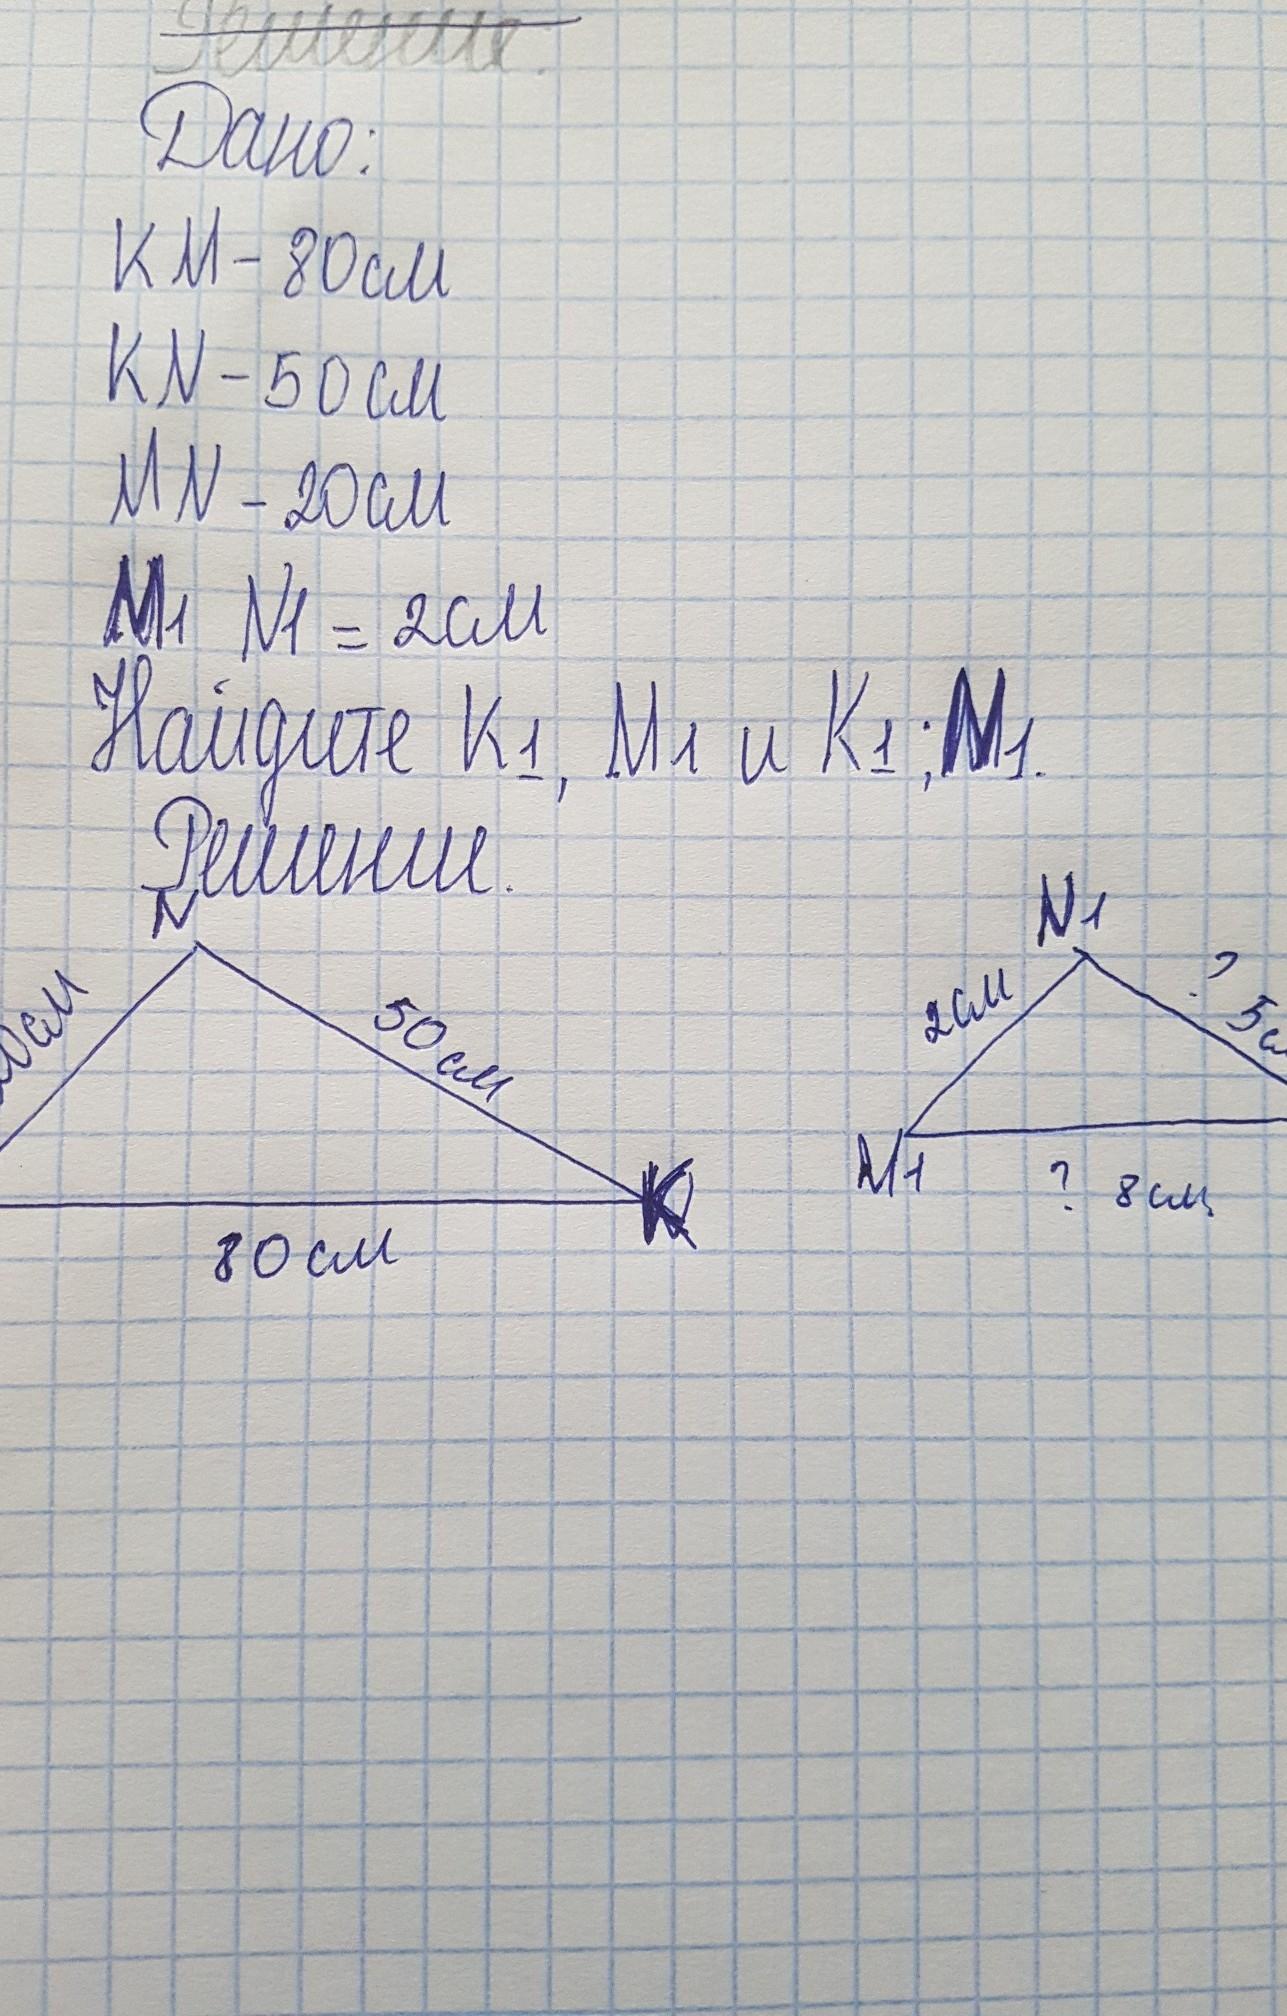 Решение.
Дано:
КМ - 80 см
KN - 50 см
MN - 20 см
M1 N1 = 2 см
Найдите K1, M1 и K1; N1.
Решение.
N
50 см
K
80 см
N1
2 см
?
M1
? 8 см